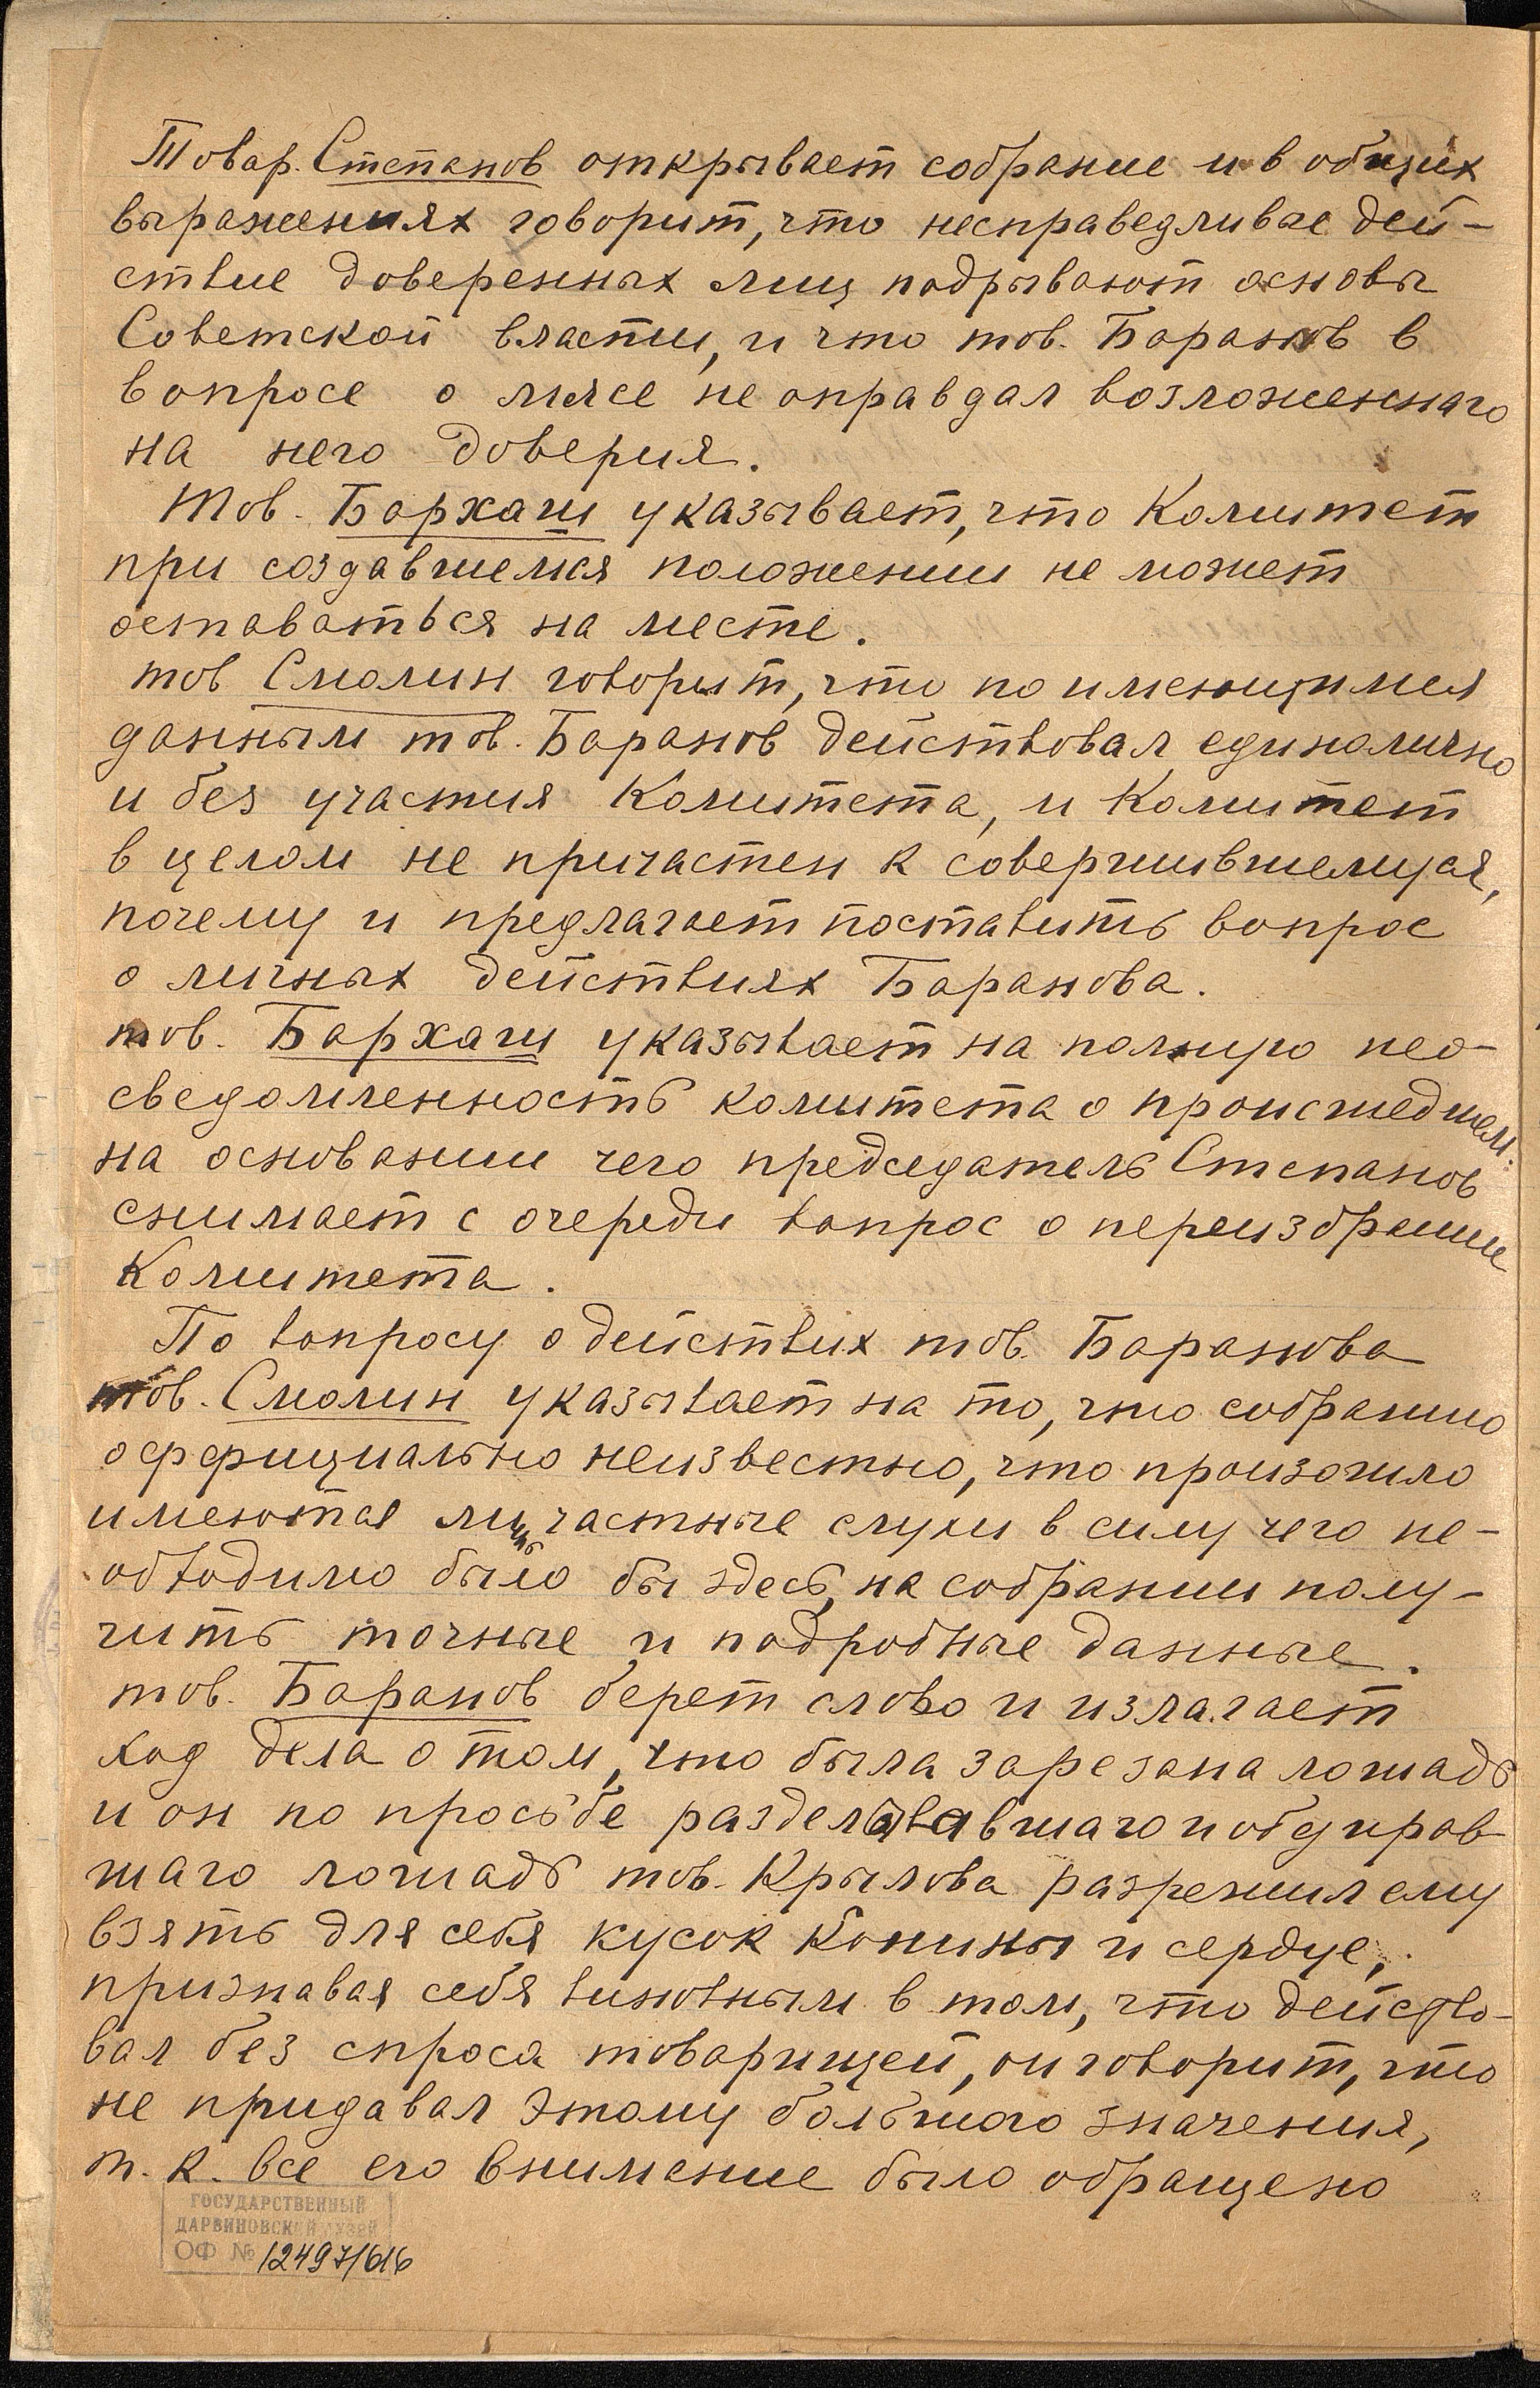 Товар. Степанов открывает собрание и в общих
выражениях говорит, что несправедливые дей-
ствие доверенных лиц подрывают основы
Советской власти, и что тов. Баранов в
вопросе о мясе не оправдал возложеннаго
на него доверия.
Тов. Бархаш указывает, что Комитет
при создавшемся положении не может
оставаться на месте.
тов Смолин говорит, что по имеющимся
данным тов. Баранов действовал единолично
и без участия Комитета, и Комитет
в целом не причастен к совершившемуся,
почему и предлагает поставить вопрос
о личных действиях Баранова.
тов. Бархаш указывает на полную нео-
сведомленность комитета о происшедшем.
на основании чего председатель Степанов
снимает с очереди вопрос о переизбрании
Комитета.
По вопросу о действих тов. Баранова
тов. Смолин указывает на то, что собранию
оффициально неизвестно, что произошло
имеются лишь частные слухи в силу чего не-
обходимо было бы здесь, на собрании полу-
чить точные и подробные данные.
тов. Баранов берет слово и излагает
ход дела о том, что была зарезана лошадь
и он по просьбе разделывавшаго и обдирав-
шаго лошадь тов. Крылова разрешил ему
взять для себя кусок конины и сердце,
признавая себя виновным в том, что действо-
вал без спроса товарищей, он говорит, что
не придавал этому большого значения,
т. к. все его внимание было обращено
ГОСУДАРСТВЕННЫЙ
ДАРВИНОВСКИЙ МУЗЕЙ
ОФ № 12497/616